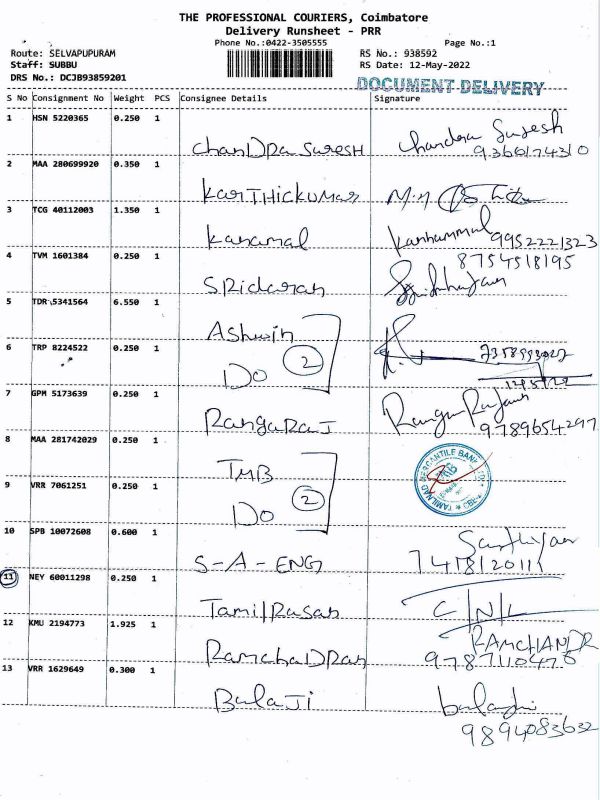 THE PROFESSIONAL COURIERS, Coimbatore
Delivery Runsheet - PRR
Phone No.:0422-3505555 Page No.:1
Route: SELVAPUPURAM RS No.: 938592
Staff: SUBBU RS Date: 12-May-2022
DRS No.: DCJB93859201
DOCUMENT DELIVERY
S No Consignment No Weight PCS Consignee Details Signature
1 HSN 5220365 0.250 1
ChanDRa SureSH Chandra Suresh
9360174310
2 MAA 280699920 0.350 1
KarTHICKUMAR
3 TCG 40112003 1.350 1
Kanamal Kanhammal 9952221323
4 TVM 1601384 0.250 1 8754518195
SRidaran
5 TDR 5341564 6.550 1
Ashwin
6 TRP 8224522 0.250 1
Do 2
7 GPM 5173639 0.250 1
RangaRaJ 9789654297
8 MAA 281742029 0.250 1
TMB TAMILNAD MERCANTILE BANK LTD
9 VRR 7061251 0.250 1
Do 2
10 SPB 10072608 0.600 1
S-A-ENG
11 NEY 60011298 0.250 1
TamilRasan C/N/L
12 KMU 2194773 1.925 1 RAMCHANDR
RamchaDRan 9787110476
13 VRR 1629649 0.300 1
BalaJi balaji
9894083632